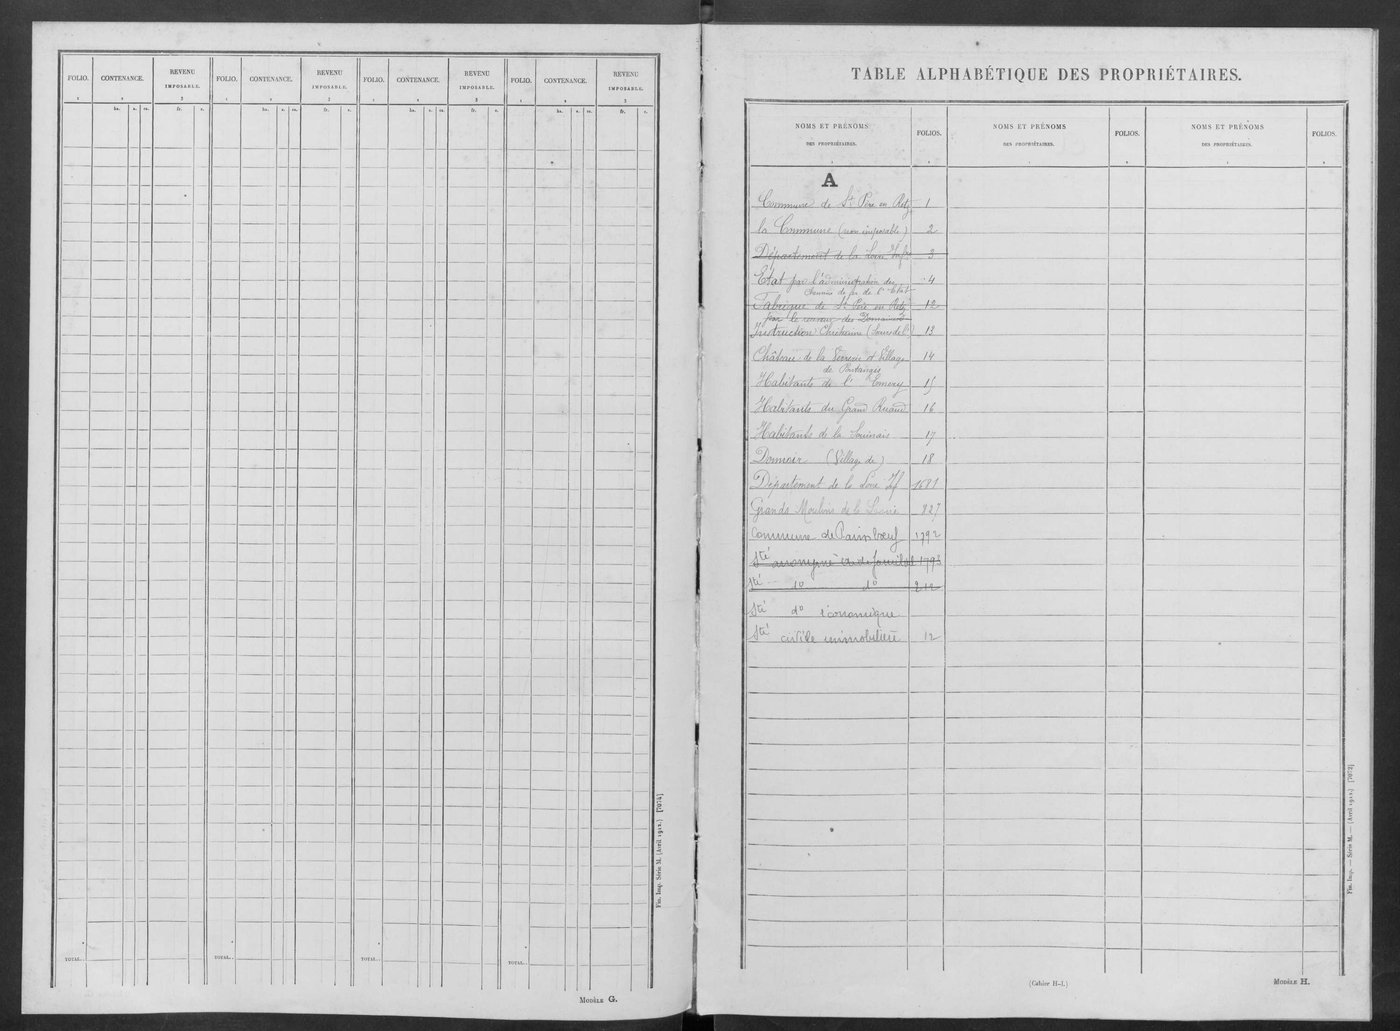 FOLIO. CONTENANCE. REVENU IMPOSABLE. FOLIO. CONTENANCE. REVENU IMPOSABLE. FOLIO. CONTENANCE. REVENU IMPOSABLE. FOLIO. CONTENANCE. REVENU IMPOSABLE.
1 2 3 1 2 3 1 2 3 1 2 3
ha. a. ca. fr. c. ha. a. ca. fr. c. ha. a. ca. fr. c. ha. a. ca. fr. c.
TOTAL. TOTAL. TOTAL. TOTAL.
Fin. Imp. Série M. (Avril 1912.) [7074]
MODÈLE G.
TABLE ALPHABÉTIQUE DES PROPRIÉTAIRES.
NOMS ET PRÉNOMS DES PROPRIÉTAIRES. FOLIOS. NOMS ET PRÉNOMS DES PROPRIÉTAIRES. FOLIOS. NOMS ET PRÉNOMS DES PROPRIÉTAIRES. FOLIOS.
A
Commune de St Père en Retz 1
la Commune (non imposable) 2
Département de la Loire Infre 3
État par l'administration des 4
Chemins de fer de l'État
Fabrique de St Père en Retz 12
par le des Domaines
Instruction Chrétienne (Sœurs de l') 13
Château de la et Village 14
de
Habitants de l' 15
Habitants du Grand Ruaud 16
Habitants de la 17
(Village de) 18
Département de la Loire Inf 1681
Grands Moulins de la Loire 827
Commune de Paimbœuf 1792
Sté anonyme 1793
Sté do do 212
Sté do économique
Sté civile immobilière 12
(Cahier H-1.)
MODÈLE H.
Fin. Imp. — Série M. — (Avril 1912.) [7073]